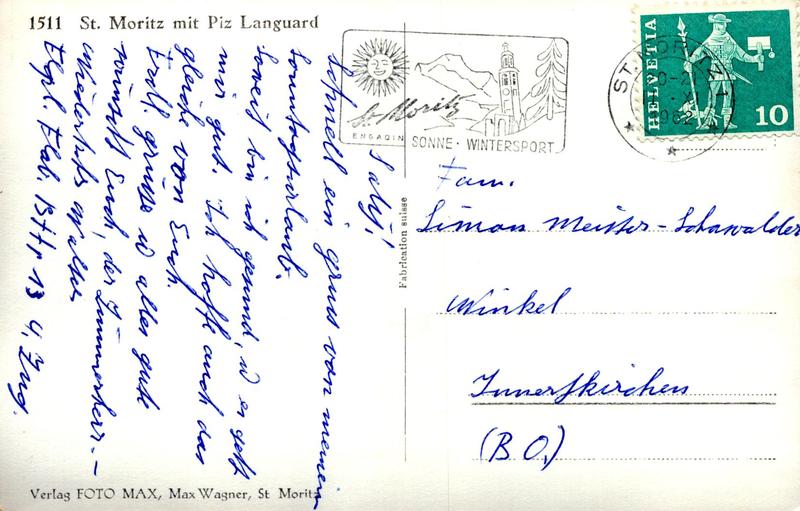 1511 St. Moritz mit Piz Languard
Saly!
Schnell ein gruss von meinem
Sonntagsurlaub.
Soweit bin ich gesund, u es geht
mir gut. Ich hoffe auch das
gleiche von Euch.
Frdl. grüsse u alles gute
wünscht Euch, der Zimmerherr. –
Walter
4, Zug.
St. Moritz
ENGADIN
SONNE · WINTERSPORT
ST. MORITZ 1
1962
HELVETIA
10
Fam.
Simon Meister-Schawalder
Winkel
Innertkirchen
(B O.)
Fabrication suisse
Verlag FOTO MAX, Max Wagner, St Moritz